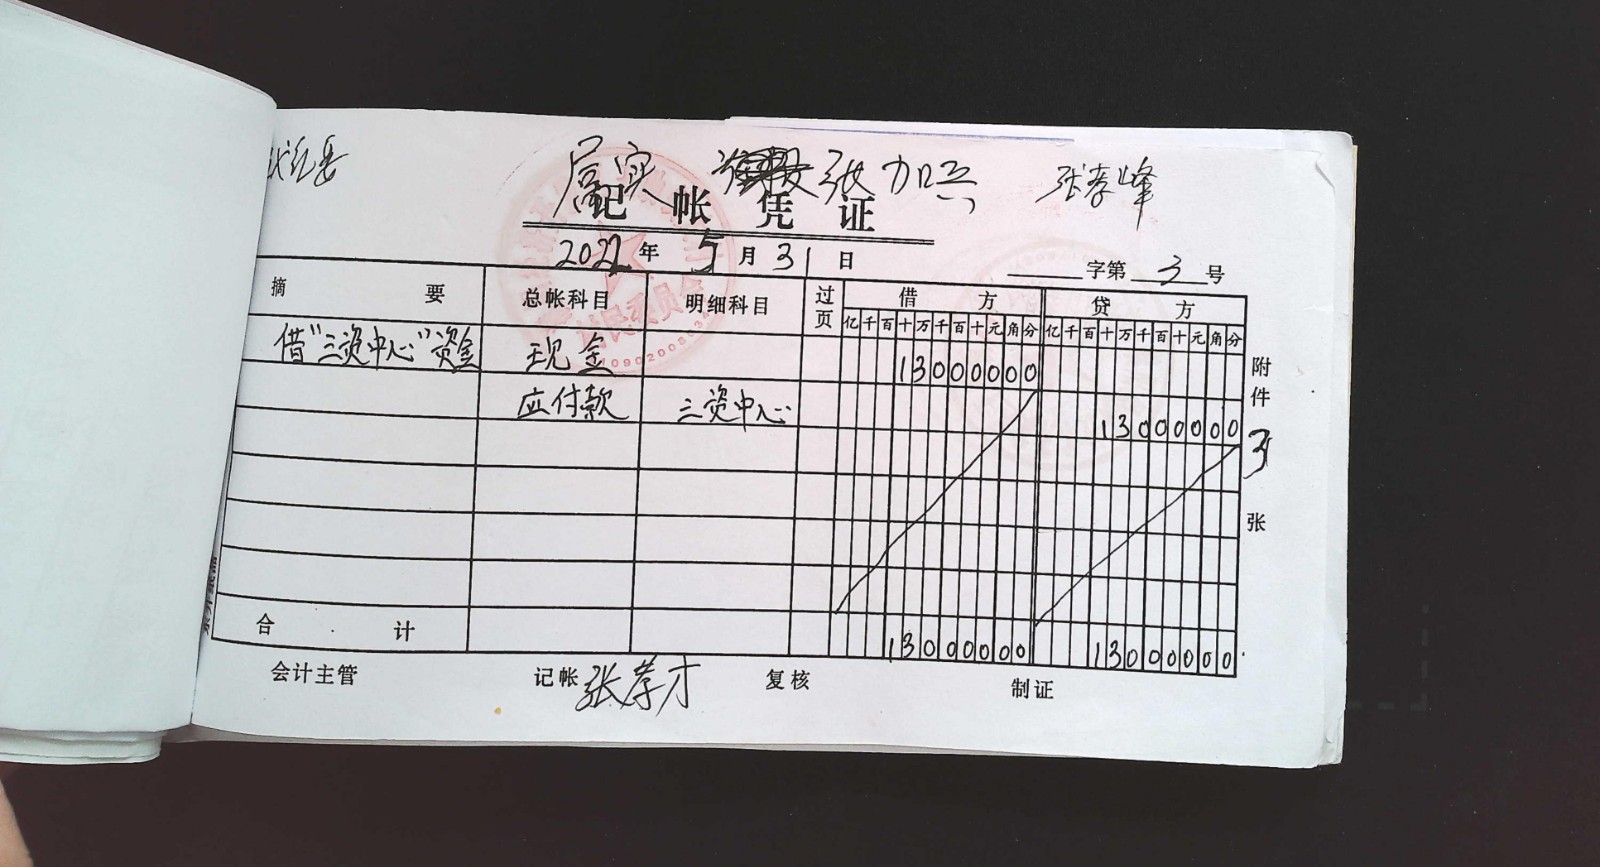 属实 张加兴 张孝峰
记帐凭证
2022年5月31日
字第3号
摘要 总帐科目 明细科目 过页 借方 贷方
亿千百十万千百十元角分 亿千百十万千百十元角分
借"三资中心"资金 现金 13000000
应付款 三资中心 13000000
附件3张
合计 13000000 13000000
会计主管 记帐 张孝才 复核 制证
村民委员会